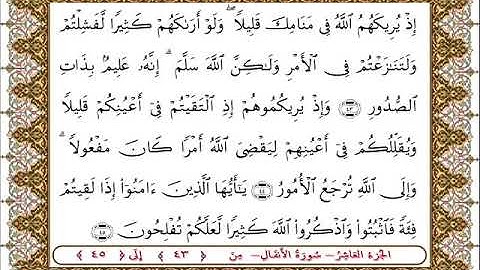 إِذْ يُرِيكَهُمُ ٱللَّهُ فِى مَنَامِكَ قَلِيلًا ۖ وَلَوْ أَرَىٰكَهُمْ كَثِيرًا لَّفَشِلْتُمْ
وَلَتَنَـٰزَعْتُمْ فِى ٱلْأَمْرِ وَلَـٰكِنَّ ٱللَّهَ سَلَّمَ ۗ إِنَّهُۥ عَلِيمٌۢ بِذَاتِ
ٱلصُّدُورِ ٤٣ وَإِذْ يُرِيكُمُوهُمْ إِذِ ٱلْتَقَيْتُمْ فِىٓ أَعْيُنِكُمْ قَلِيلًا
وَيُقَلِّلُكُمْ فِىٓ أَعْيُنِهِمْ لِيَقْضِىَ ٱللَّهُ أَمْرًا كَانَ مَفْعُولًا ۗ
وَإِلَى ٱللَّهِ تُرْجَعُ ٱلْأُمُورُ ٤٤ يَـٰٓأَيُّهَا ٱلَّذِينَ ءَامَنُوٓا۟ إِذَا لَقِيتُمْ
فِئَةً فَٱثْبُتُوا۟ وَٱذْكُرُوا۟ ٱللَّهَ كَثِيرًا لَّعَلَّكُمْ تُفْلِحُونَ ٤٥
الجزء العاشر - سورة الأنفال - من ﴿ ٤٣ ﴾ إلى ﴿ ٤٥ ﴾